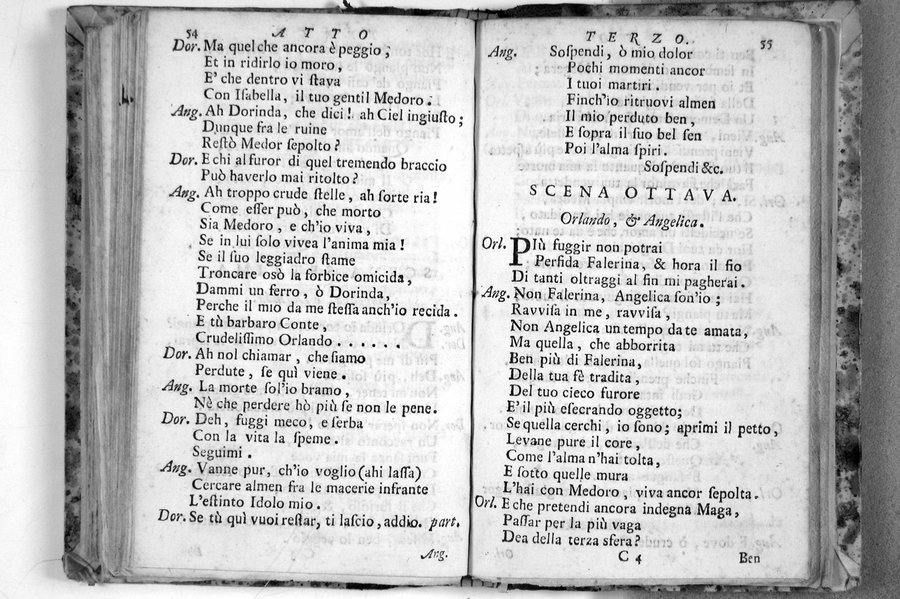 54 ATTO
Dor. Ma quel che ancora è peggio;
Et in ridirlo io moro,
E' che dentro vi ſtava
Con Iſabella, il tuo gentil Medoro.
Ang. Ah Dorinda, che dici! ah Ciel ingiuſto;
Dunque fra le ruine
Reſtò Medor ſepolto?
Dor. E chi al furor di quel tremendo braccio
Può haverlo mai ritolto?
Ang. Ah troppo crude ſtelle, ah ſorte ria!
Come eſſer può, che morto
Sia Medoro, e ch'io viva,
Se in lui ſolo vivea l'anima mia!
Se il ſuo leggiadro ſtame
Troncare osò la forbice omicida,
Dammi un ferro, ò Dorinda,
Perche il mio da me ſteſſa anch'io recida.
E tù barbaro Conte,
Crudeliſſimo Orlando . . . . . .
Dor. Ah nol chiamar, che ſiamo
Perdute, ſe quì viene.
Ang. La morte ſol'io bramo,
Nè che perdere hò più ſe non le pene.
Dor. Deh, fuggi meco, e ſerba
Con la vita la ſpeme.
Seguimi.
Ang. Vanne pur, ch'io voglio (ahi laſſa)
Cercare almen fra le macerie infrante
L'eſtinto Idolo mio.
Dor. Se tù quì vuoi reſtar, ti laſcio, addio. part.
Ang.
TERZO. 55
Ang. Soſpendi, ò mio dolor
Pochi momenti ancor
I tuoi martiri.
Finch'io ritruovi almen
Il mio perduto ben,
E ſopra il ſuo bel ſen
Poi l'alma ſpiri.
Soſpendi &c.
SCENA OTTAVA.
Orlando, & Angelica.
Orl. PIù fuggir non potrai
Perfida Falerina, & hora il fio
Di tanti oltraggi al fin mi pagherai.
Ang. Non Falerina, Angelica ſon'io;
Ravviſa in me, ravviſa,
Non Angelica un tempo da te amata,
Ma quella, che abborrita
Ben più di Falerina,
Della tua fè tradita,
Del tuo cieco furore
E' il più eſecrando oggetto;
Se quella cerchi, io ſono; aprimi il petto,
Levane pure il core,
Come l'alma n'hai tolta,
E ſotto quelle mura
L'hai con Medoro, viva ancor ſepolta.
Orl. E che pretendi ancora indegna Maga,
Paſſar per la più vaga
Dea della terza sfera?
C 4 Ben